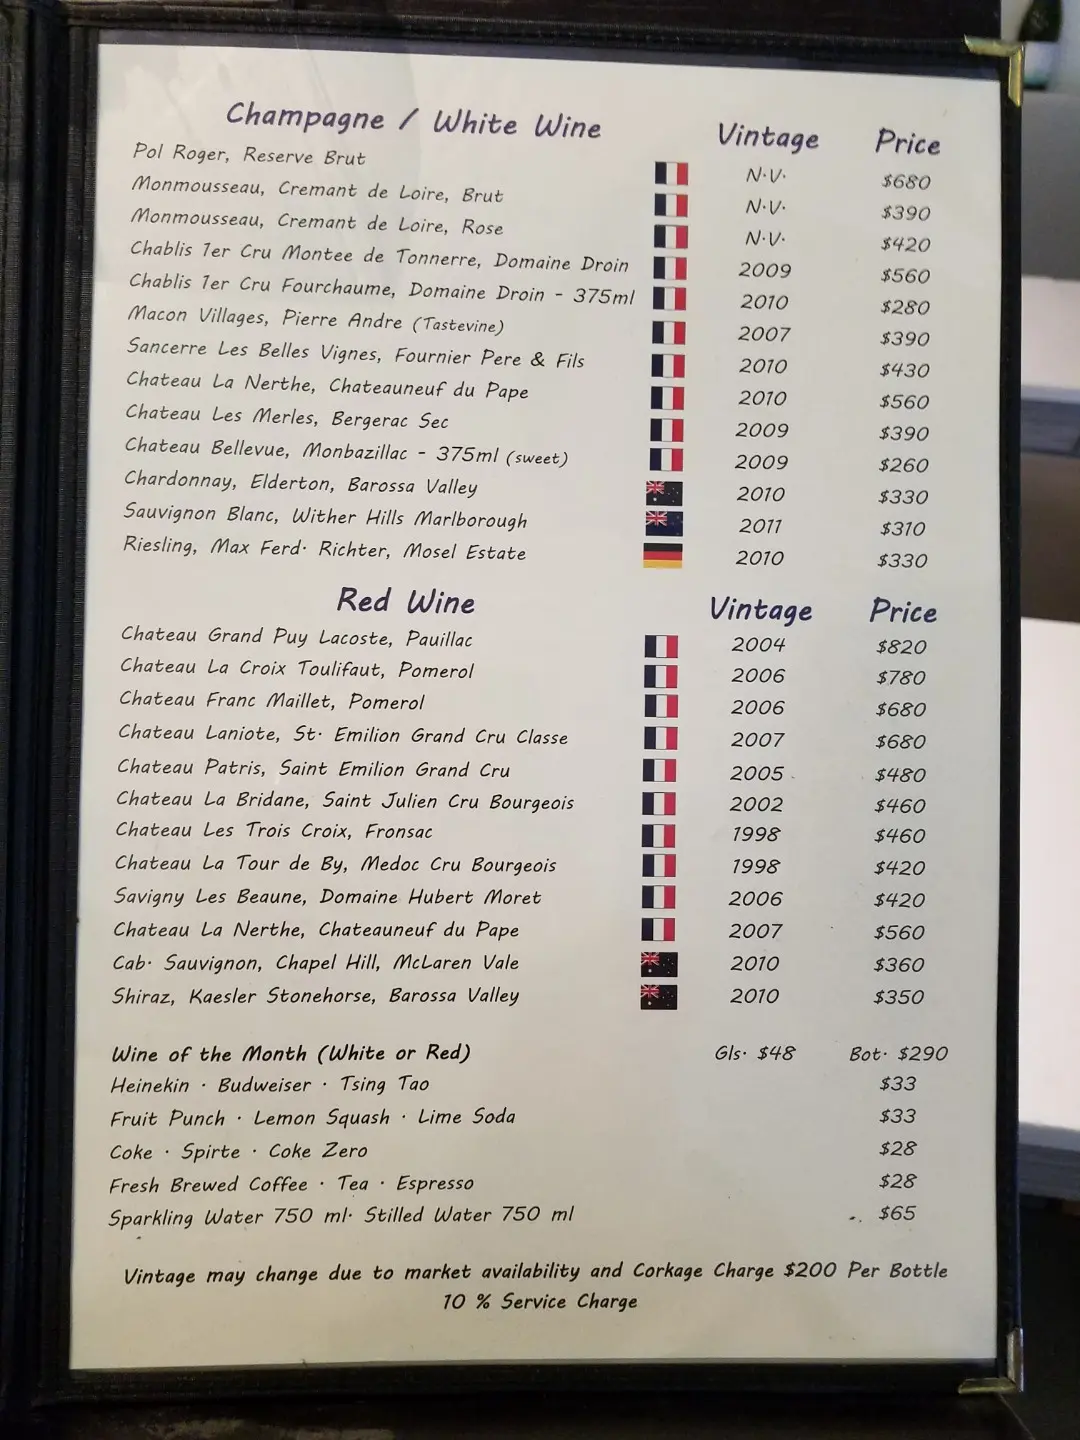 Champagne / White Wine Vintage Price
Pol Roger, Reserve Brut N.V. $680
Monmousseau, Cremant de Loire, Brut N.V. $390
Monmousseau, Cremant de Loire, Rose N.V. $420
Chablis 1er Cru Montee de Tonnerre, Domaine Droin 2009 $560
Chablis 1er Cru Fourchaume, Domaine Droin - 375ml 2010 $280
Macon Villages, Pierre Andre (Tastevine) 2007 $390
Sancerre Les Belles Vignes, Fournier Pere & Fils 2010 $430
Chateau La Nerthe, Chateauneuf du Pape 2010 $560
Chateau Les Merles, Bergerac Sec 2009 $390
Chateau Bellevue, Monbazillac - 375ml (sweet) 2009 $260
Chardonnay, Elderton, Barossa Valley 2010 $330
Sauvignon Blanc, Wither Hills Marlborough 2011 $310
Riesling, Max Ferd. Richter, Mosel Estate 2010 $330
Red Wine Vintage Price
Chateau Grand Puy Lacoste, Pauillac 2004 $820
Chateau La Croix Toulifaut, Pomerol 2006 $780
Chateau Franc Maillet, Pomerol 2006 $680
Chateau Laniote, St. Emilion Grand Cru Classe 2007 $680
Chateau Patris, Saint Emilion Grand Cru 2005 $480
Chateau La Bridane, Saint Julien Cru Bourgeois 2002 $460
Chateau Les Trois Croix, Fronsac 1998 $460
Chateau La Tour de By, Medoc Cru Bourgeois 1998 $420
Savigny Les Beaune, Domaine Hubert Moret 2006 $420
Chateau La Nerthe, Chateauneuf du Pape 2007 $560
Cab. Sauvignon, Chapel Hill, McLaren Vale 2010 $360
Shiraz, Kaesler Stonehorse, Barossa Valley 2010 $350
Wine of the Month (White or Red) Gls. $48 Bot. $290
Heinekin · Budweiser · Tsing Tao $33
Fruit Punch · Lemon Squash · Lime Soda $33
Coke · Spirte · Coke Zero $28
Fresh Brewed Coffee · Tea · Espresso $28
Sparkling Water 750 ml. Stilled Water 750 ml $65
Vintage may change due to market availability and Corkage Charge $200 Per Bottle
10 % Service Charge